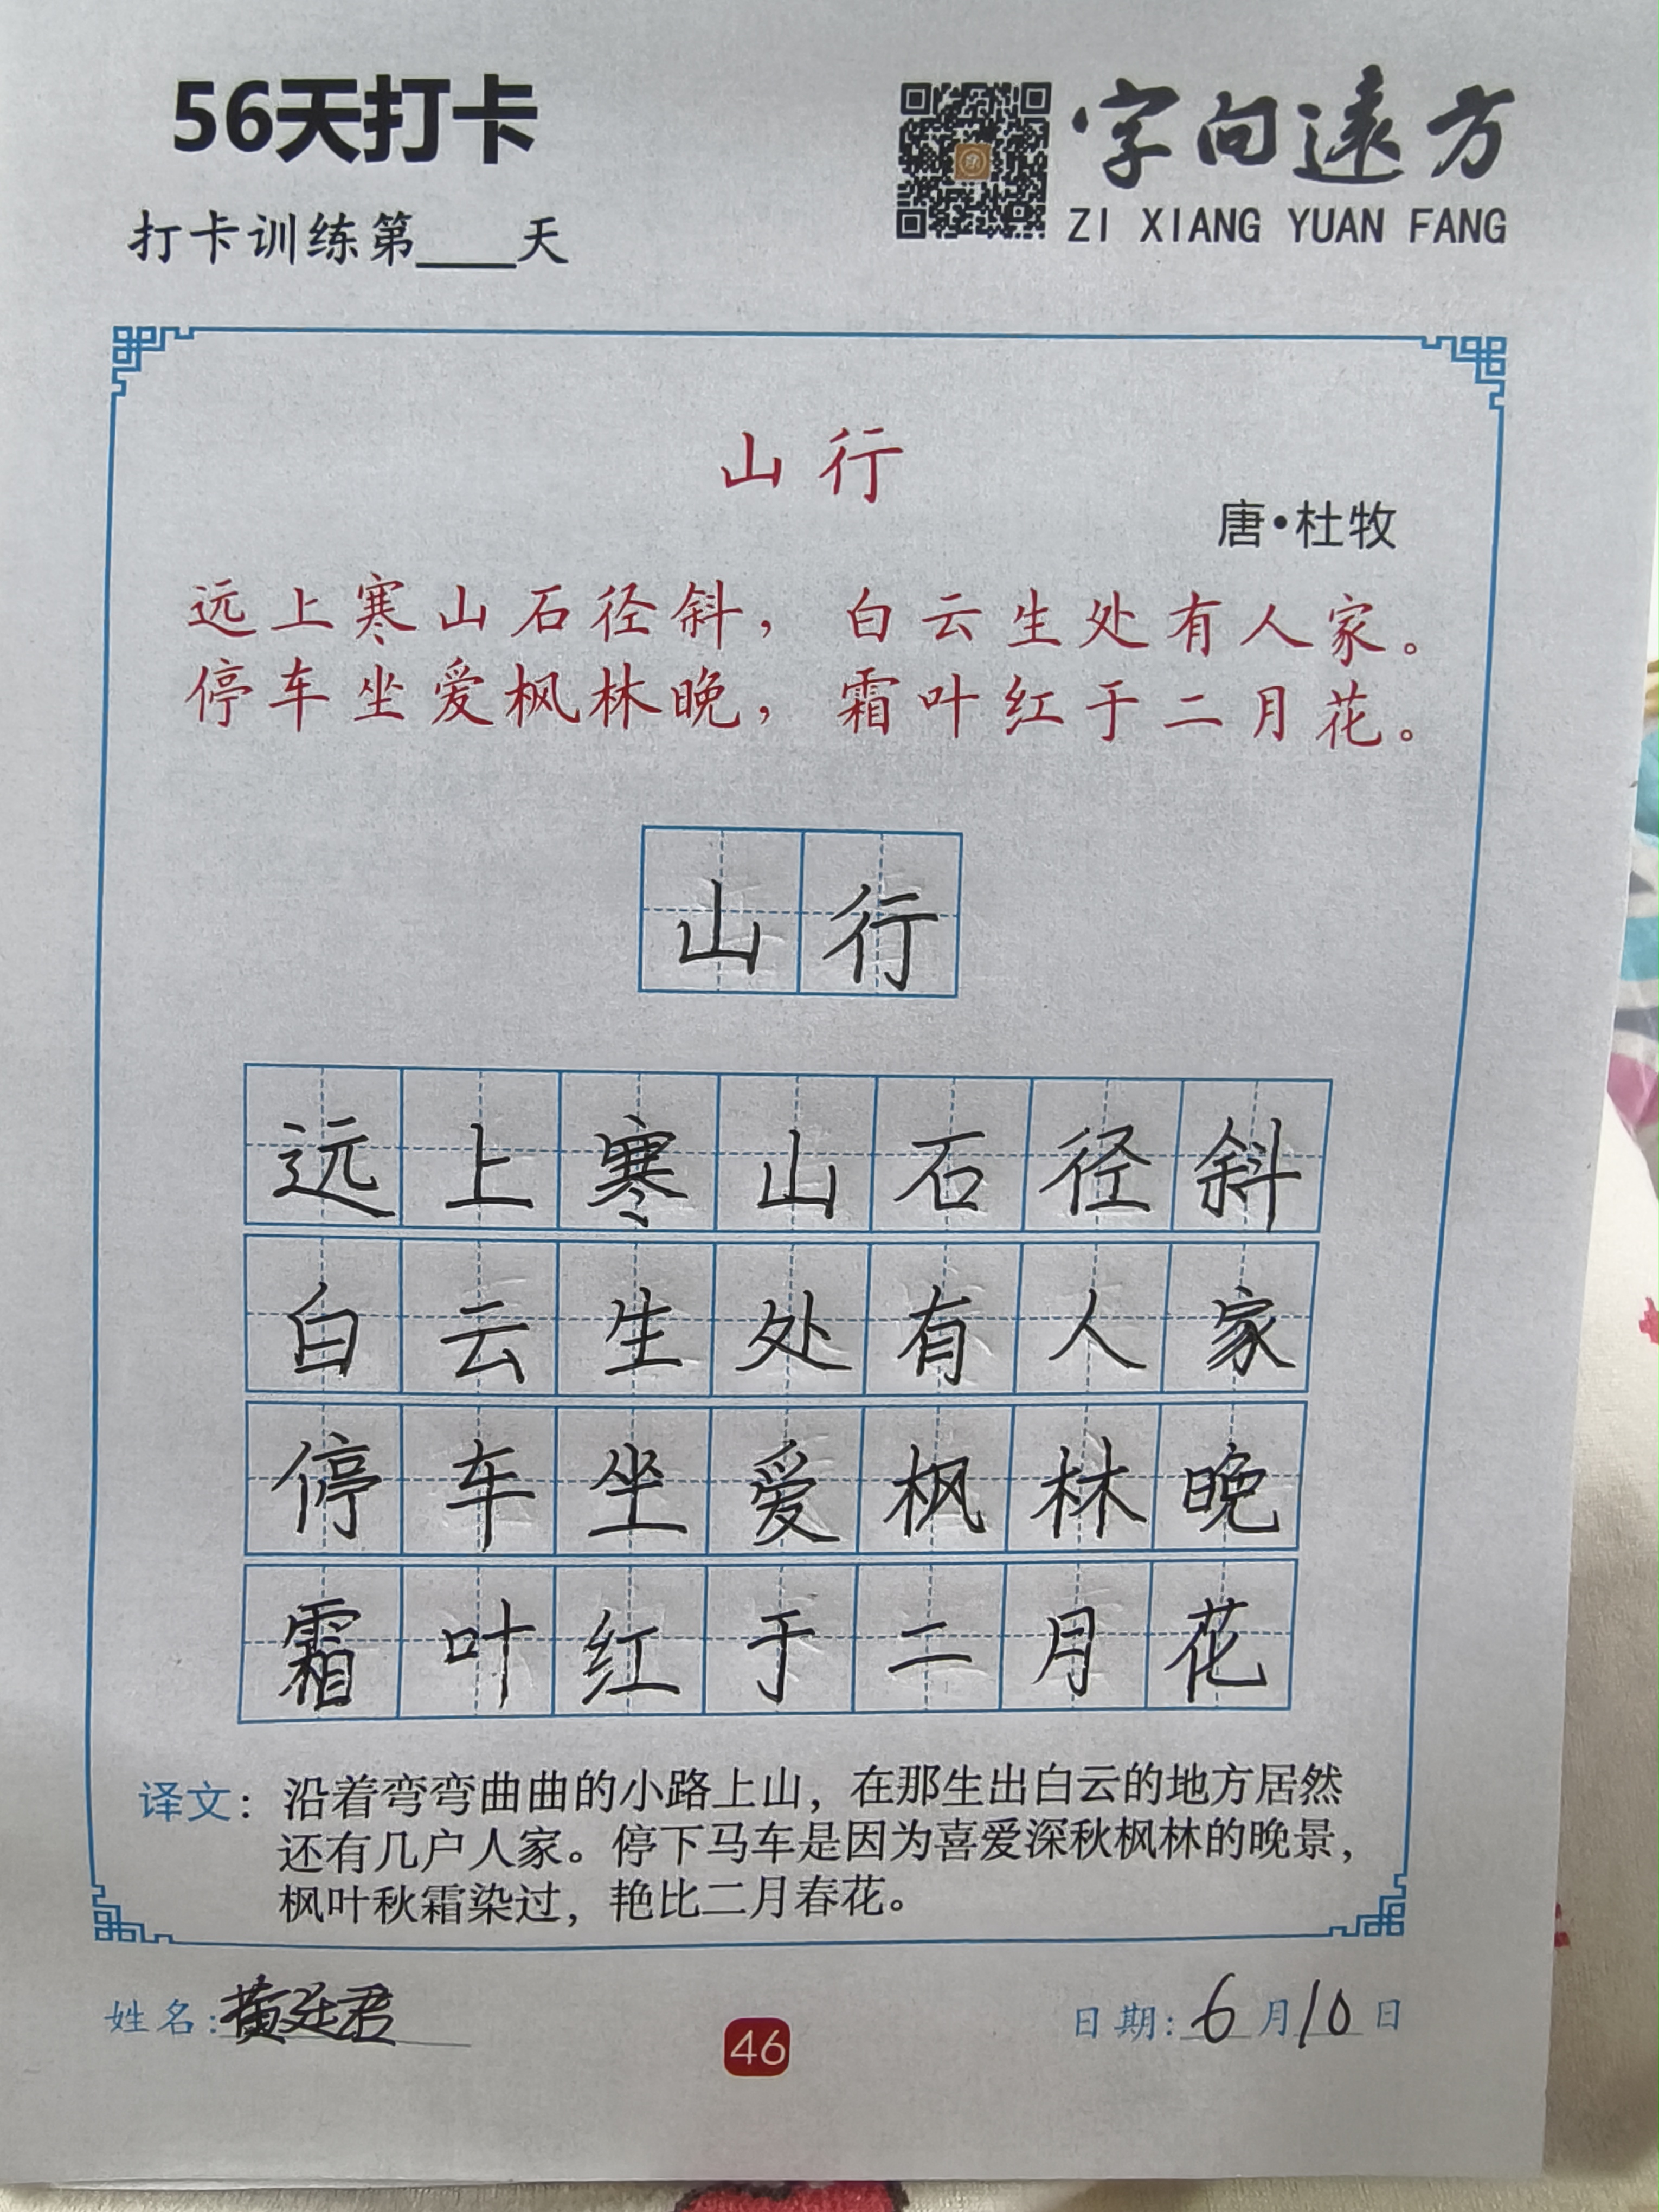 56天打卡
打卡训练第____天
字向遠方
ZI XIANG YUAN FANG
山行
唐•杜牧
远上寒山石径斜，白云生处有人家。
停车坐爱枫林晚，霜叶红于二月花。
山行
远上寒山石径斜
白云生处有人家
停车坐爱枫林晚
霜叶红于二月花
译文：沿着弯弯曲曲的小路上山，在那生出白云的地方居然
还有几户人家。停下马车是因为喜爱深秋枫林的晚景，
枫叶秋霜染过，艳比二月春花。
姓名:黄廷君
46
日期:6月10日